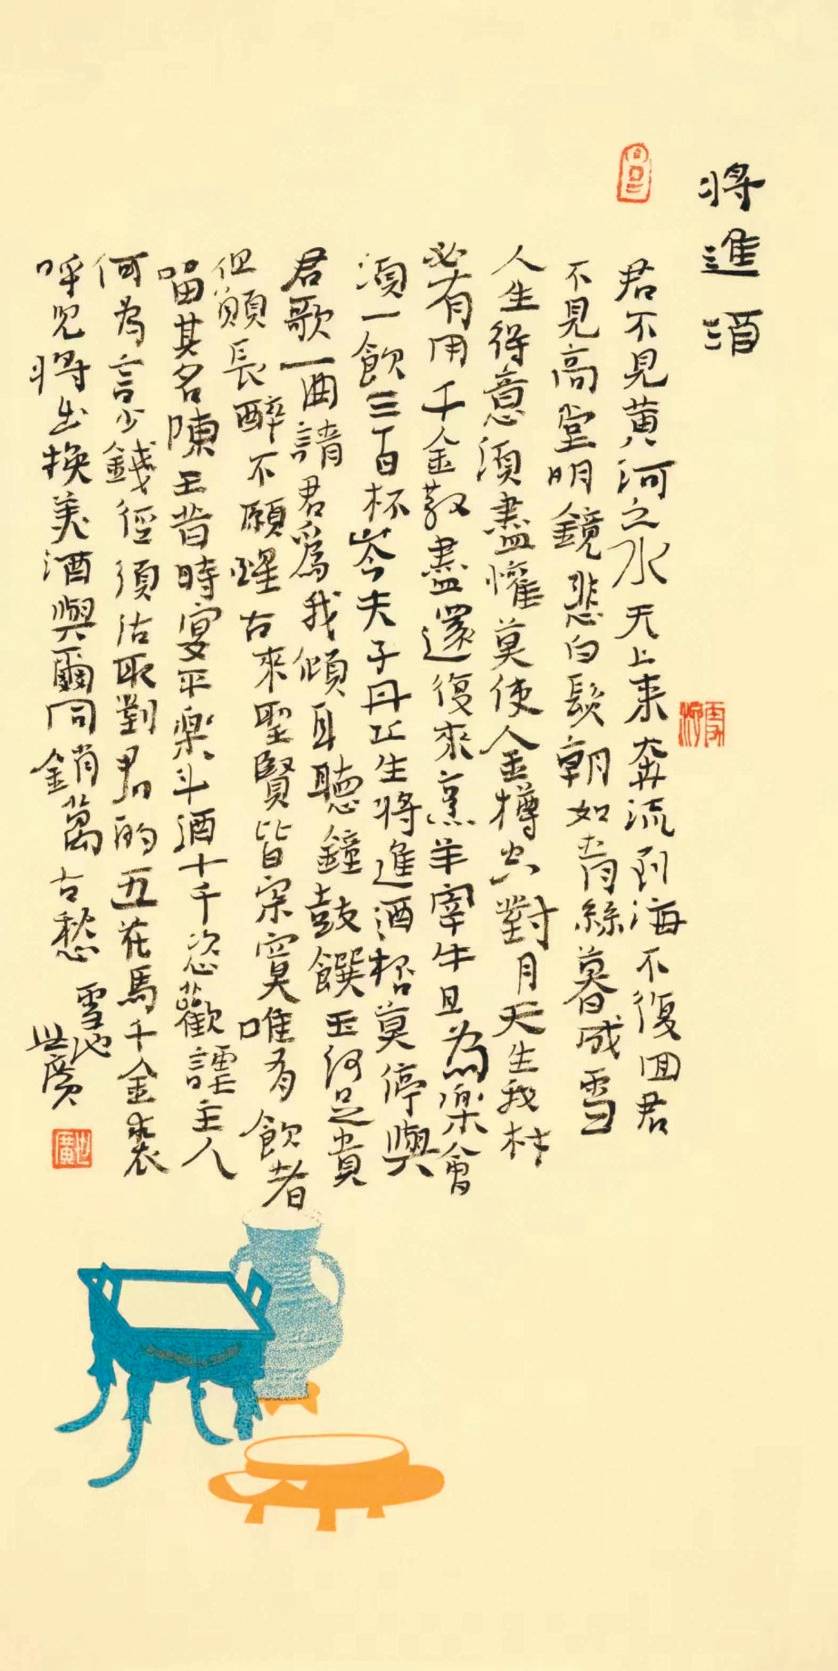 將進酒
君不見黃河之水天上來奔流到海不復回君
不見高堂明鏡悲白髮朝如青絲暮成雪
人生得意須盡懽莫使金樽空對月天生我材
必有用千金散盡還復來烹羊宰牛且為樂會
須一飲三百杯岑夫子丹丘生將進酒杯莫停與
君歌一曲請君爲我傾耳聽鐘鼓饌玉何足貴
但願長醉不願醒古來聖賢皆寂寞唯有飲者
留其名陳王昔時宴平樂斗酒十千恣歡謔主人
何為言少錢徑須沽取對君酌五花馬千金裘
呼兒將出換美酒與爾同銷萬古愁 雪池
世廣